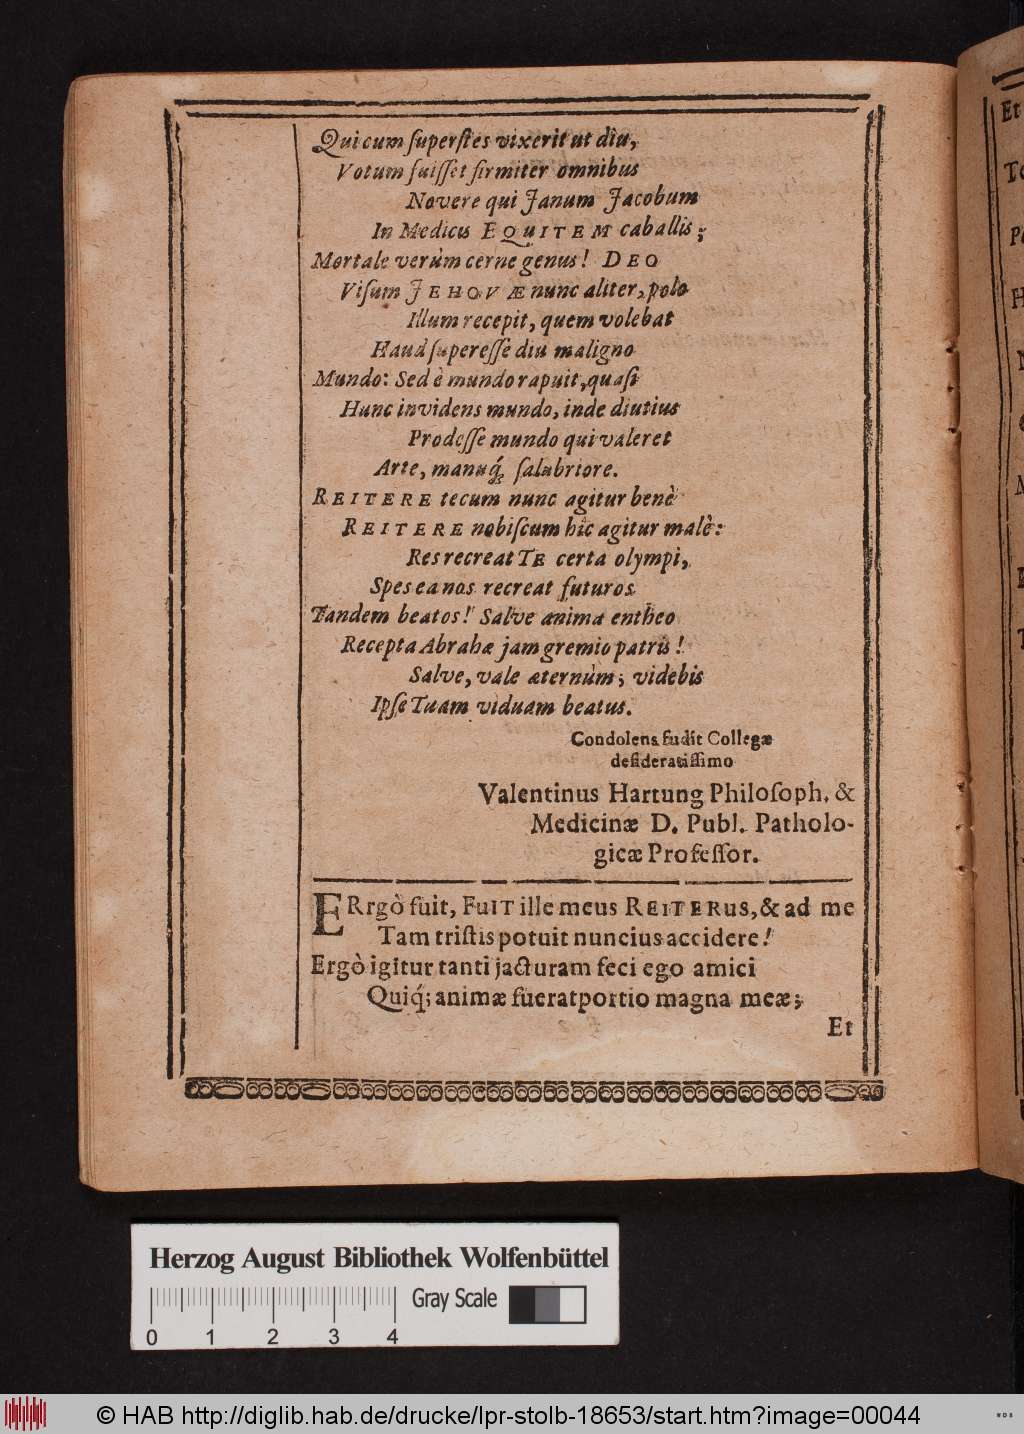 Qui cum ſuperſtes vixerit ut diu,
Votum fuiſſet firmiter omnibus
Novere qui Janum Jacobum
In Medicis EQuITEM caballis;
Mortale verùm cerne genus! DEO
Viſum JEHOVÆ nunc aliter, polo
Illum recepit, quem volebat
Haud ſupereſſe diu maligno
Mundo: Sed è mundo rapuit, quaſi
Hunc invidens mundo, inde diutius
Prodeſſe mundo qui valeret
Arte, manuq́; ſalubriore.
REITERE tecum nunc agitur benè
REITERE nobiſcum hîc agitur malè:
Res recreat TE certa olympi,
Spes ea nos recreat futuros
Tandem beatos! Salve anima entheo
Recepta Abrahæ jam gremio patris!
Salve, vale æternùm; videbis
Ipſe Tuam viduam beatus.
Condolens fudit Collegæ
deſideratiſſimo
Valentinus Hartung Philoſoph. &
Medicinæ D. Publ. Patholo-
gicæ Profeſſor.
ERrgò fuit, FuIT ille meus REITERus, & ad me
Tam triſtis potuit nuncius accidere!
Ergò igitur tanti jacturam feci ego amici
Quiq́; animæ fuerat portio magna meæ;
Et
Herzog August Bibliothek Wolfenbüttel
Gray Scale
0 1 2 3 4
© HAB http://diglib.hab.de/drucke/lpr-stolb-18653/start.htm?image=00044